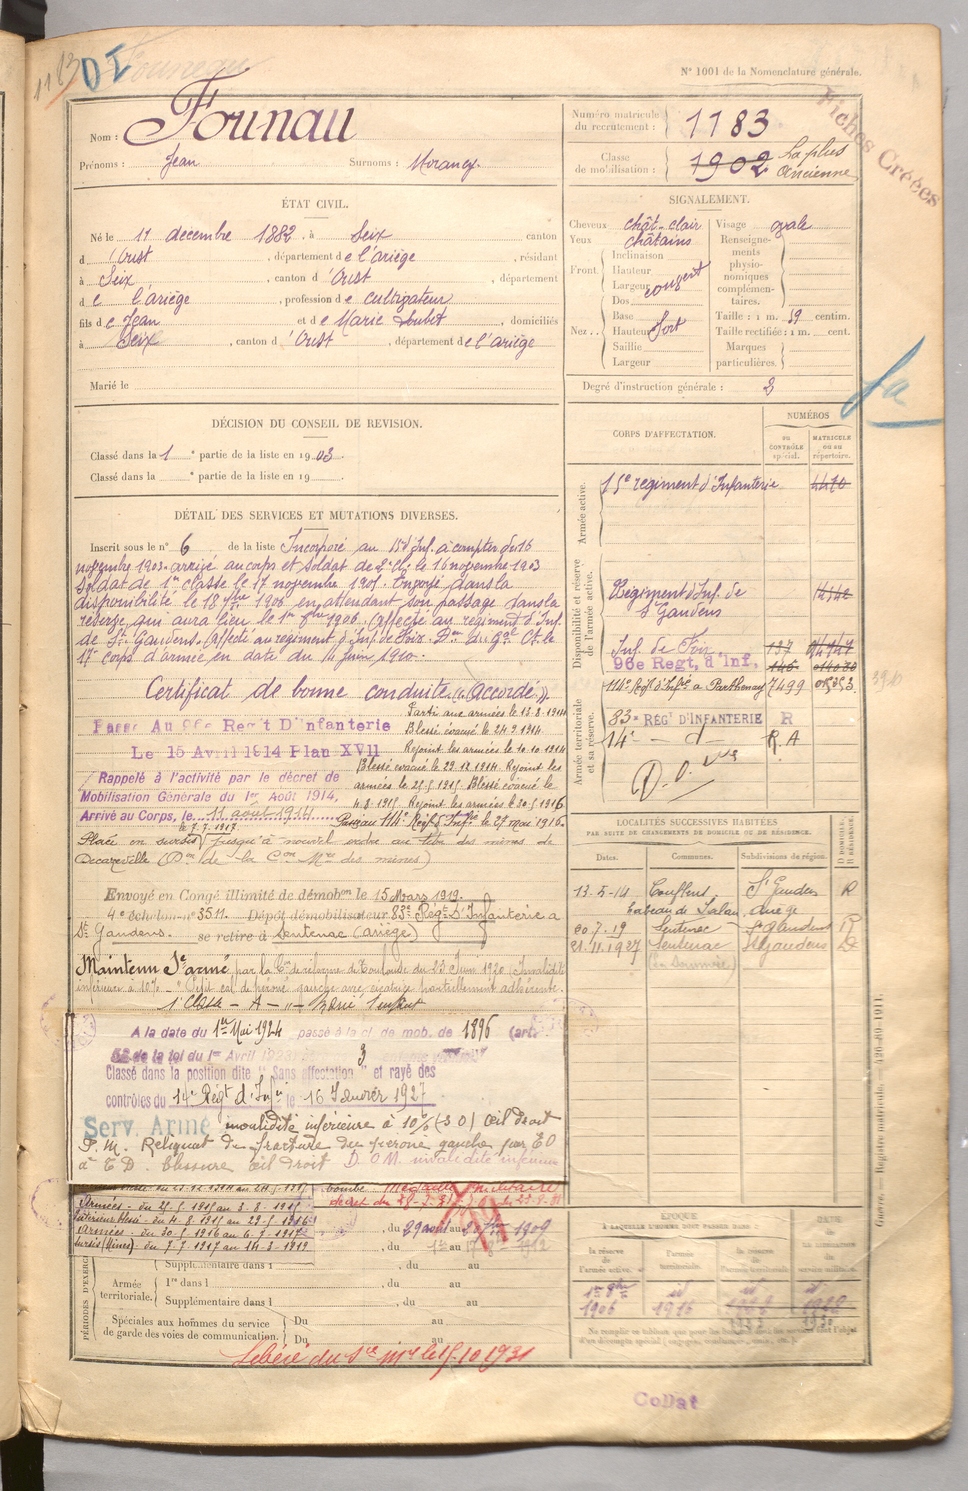 1183
DI
Founeau
N° 1001 de la Nomenclature générale.
Fiches Créées
Nom : Founau
Prénoms : Jean Surnoms : Morancy
Numéro matricule du recrutement : 1183
Classe de mobilisation : 1902 La plus ancienne
ÉTAT CIVIL.
Né le 11 décembre 1882, à Seix canton
d'Oust, département de l'ariège, résidant
à Seix, canton d'Oust, département
de l'ariège, profession de cultivateur
fils de Jean et de Marie Loubet, domiciliés
à Seix, canton d'Oust, département de l'ariège
Marié le
SIGNALEMENT.
Cheveux chât-clair
Yeux châtains
Front. Inclinaison
Hauteur
Largeur couvert
Dos
Nez. Base
Hauteur fort
Saillie
Largeur
Visage ovale
Renseignements physionomiques complémentaires.
Taille : 1 m. 59 centim.
Taille rectifiée : 1 m. cent.
Marques particulières.
Degré d'instruction générale : 3
DÉCISION DU CONSEIL DE REVISION.
Classé dans la 1e partie de la liste en 1903.
Classé dans la e partie de la liste en 19 .
DÉTAIL DES SERVICES ET MUTATIONS DIVERSES.
Inscrit sous le n° 6 de la liste Incorporé au 15e d'Inf. à compter du 16
novembre 1903. arrivé au corps et soldat de 2e Cl. le 16 novembre 1903
Soldat de 1re classe le 17 novembre 1905. Envoyé dans la
disponibilité le 18 1906 en attendant son passage dans la
réserve qui aura lieu le 1er 8bre 1906. Affecté au régiment d'Inf.
de St Gaudens. Affecté au régiment d'Inf. de Foix. Don du Gal Ct le
17e corps d'armée en date du 14 juin 1910.
Certificat de bonne conduite "Accordé"
Passé Au 96e Reg't D'infanterie
Le 15 Avril 1914 Plan XVII
Rappelé à l'activité par le décret de
Mobilisation Générale du 1er Août 1914,
Arrivé au Corps, le 11 août 1914
Parti aux armées le 13.8.1914
Blessé évacué le 24.9.1914
Rejoint les armées le 10.10.1914
Blessé évacué le 29.12.1914. Rejoint les
armées le 25.5.1915. Blessé évacué le
4.8.1915. Rejoint les armées le 30.5.1916
Passé au 114e Regt d'Infie le 27 mai 1916.
le 7.7.1917
Placé en sursis jusqu'à nouvel ordre au titre des mines de
Decazeville (Don de la Con Mre des mines)
Envoyé en Congé illimité de démobon le 15 Mars 1919.
4e échelon n° 3511. Dépôt démobilisateur 83e Régt d'Infanterie a
St Gaudens. se retire à Sentenac (ariège)
Maintenu St armé par la Con de réforme de Toulouse du 23 Juin 1920 Invalidité
inférieure à 10% - Petit cal de péroné gauche avec cicatrice partiellement adhérente.
A la date du 1er Mai 1924 passé à la cl de mob. de 1896 (art.
58 de la loi du 1er Avril 1923) 3 enfants
Classé dans la position dite "Sans affectation" et rayé des
contrôles du 14e Régt d'Infie le 16 Janvier 1927
Serv. Armé invalidité inférieure à 10% (S O) œil droit
P. M. Reliquat de fracture du péroné gauche par E O
à E D. Blessure œil droit D. O M. invalidité inférieure
Médaille militaire
Armées - du 25-5-1915 au 3-8-1915
Intérieur blessé - du 4-8-1915 au 29-5-1916
Armées - du 30-5-1916 au 6-7-1917
Sursis (Mines) - du 7-7-1917 au 14-3-1919
, du 29 août au 1909
, du 1er au 17 8bre 1912
Supplémentaire dans l , du au
Armée territoriale. 1re dans l , du au
Supplémentaire dans l , du au
Spéciales aux hommes du service de garde des voies de communication. Du au
Du au
PÉRIODES D'EXERCICES
Libéré du Sce Mre le 15.10.1931
CORPS D'AFFECTATION.
NUMÉROS
AU CONTRÔLE spécial.
MATRICULE ou au répertoire.
Armée active.
15e régiment d'Infanterie 4470
Disponibilité et réserve de l'armée active.
Régiment d'Inf. de St Gaudens
Inf. de Foix 137
96e Regt, d'Inf.
114e Regt d'Infie a Parthenay 7499
Armée territoriale et sa réserve.
83e REGt D'INFANTERIE R
14e — d — R. A
LOCALITÉS SUCCESSIVES HABITÉES
PAR SUITE DE CHANGEMENTS DE DOMICILE OU DE RÉSIDENCE.
Dates. Communes. Subdivisions de région. D DOMICILE. R RÉSIDENCE.
13-5-14 Couflens St Gaudens R
Ariège
20.7.19 Sentenac St Gaudens R
21.11.1927 Sentenac St Gaudens D
ÉPOQUE
À LAQUELLE L'HOMME DOIT PASSER DANS :
DATE DE LA LIBÉRATION du service militaire.
la réserve de l'armée active.
l'armée territoriale.
la réserve de l'armée territoriale.
1er 8bre 1906
id 1916
id 1922
id 1928
Guerre. — Registre matricule. — 426-89-1911.
Collat